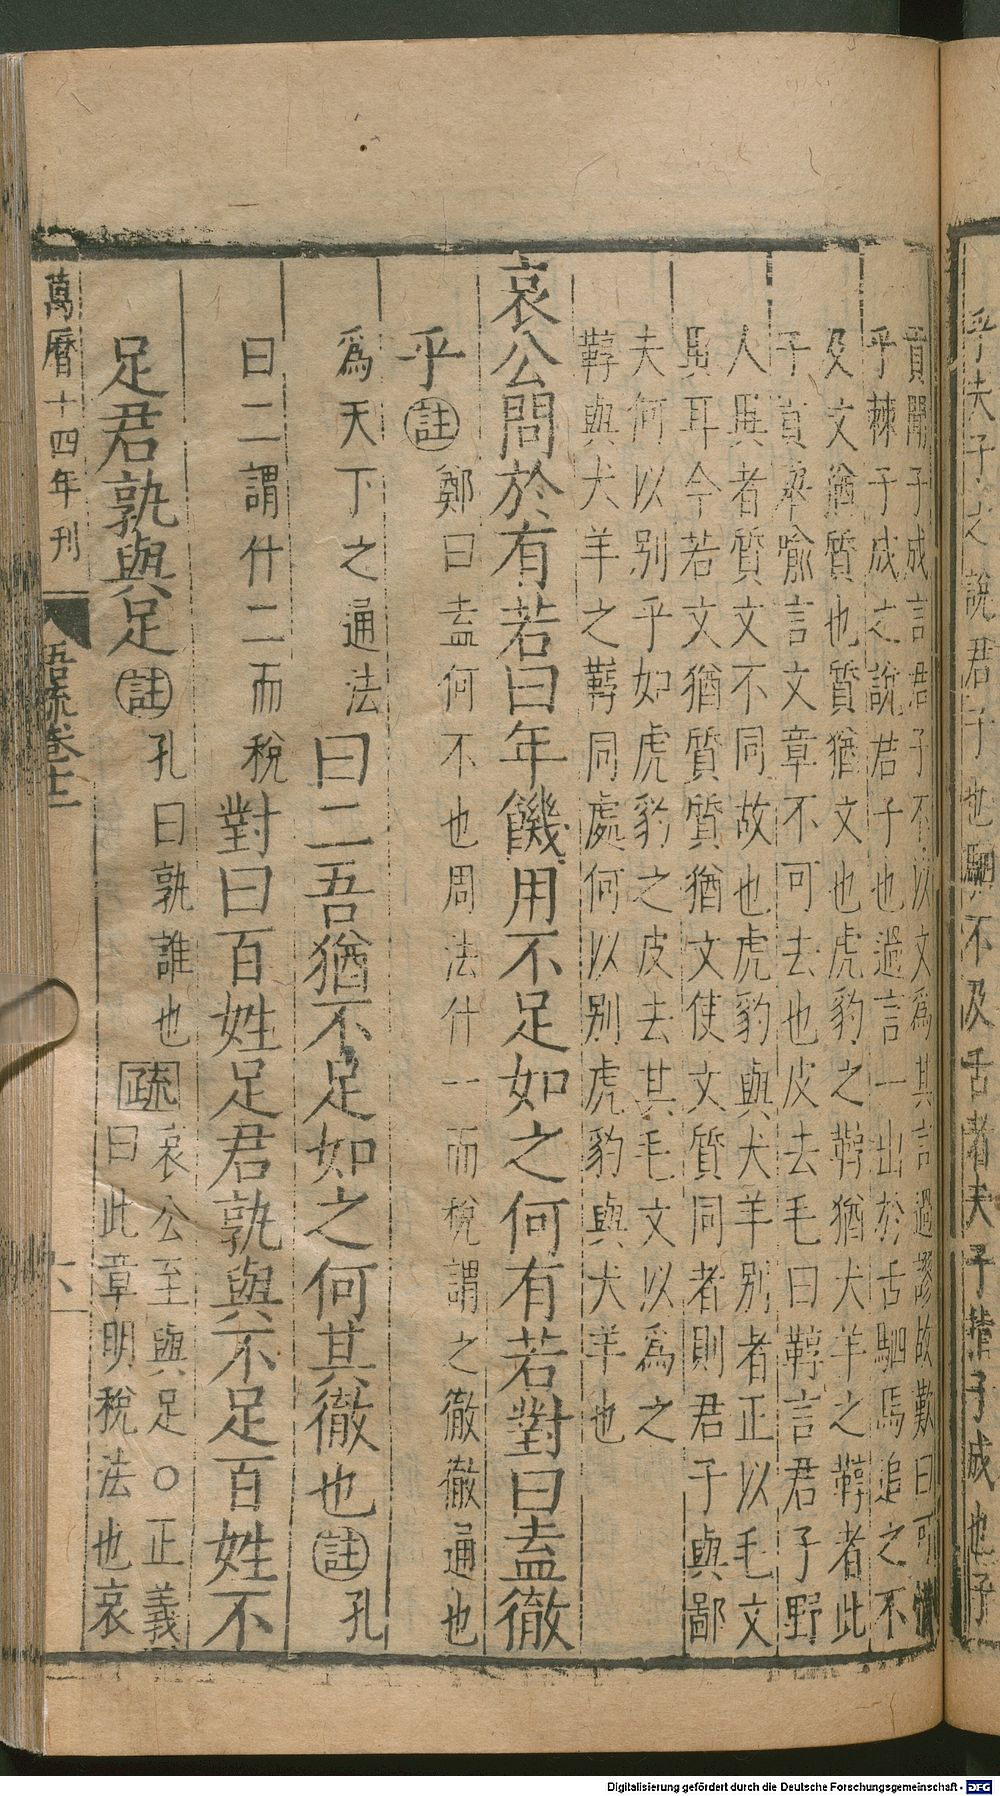 乎夫子之說君子也駟不及舌者夫子指子成也子
貢聞子成言君子不以文爲其言過謬故歎曰可惜
乎棘子成之說君子也過言一出於舌駟馬追之不
及文猶質也質猶文也虎豹之鞟猶犬羊之鞟者此
子貢舉喻言文章不可去也皮去毛曰鞟言君子野
人異者質文不同故也虎豹與犬羊別者正以毛文
異耳今若文猶質質猶文使文質同者則君子與鄙
夫何以別乎如虎豹之皮去其毛文以爲之
鞟與犬羊之鞟同處何以別虎豹與犬羊也
哀公問於有若曰年饑用不足如之何有若對曰盍徹
乎註鄭曰盍何不也周法什一而稅謂之徹徹通也
爲天下之通法曰二吾猶不足如之何其徹也註孔
曰二謂什二而稅對曰百姓足君孰與不足百姓不
足君孰與足註孔曰孰誰也疏哀公至與足○正義
曰此章明稅法也哀
萬曆十四年刊 語疏卷十二 六
Digitalisierung gefördert durch die Deutsche Forschungsgemeinschaft - DFG